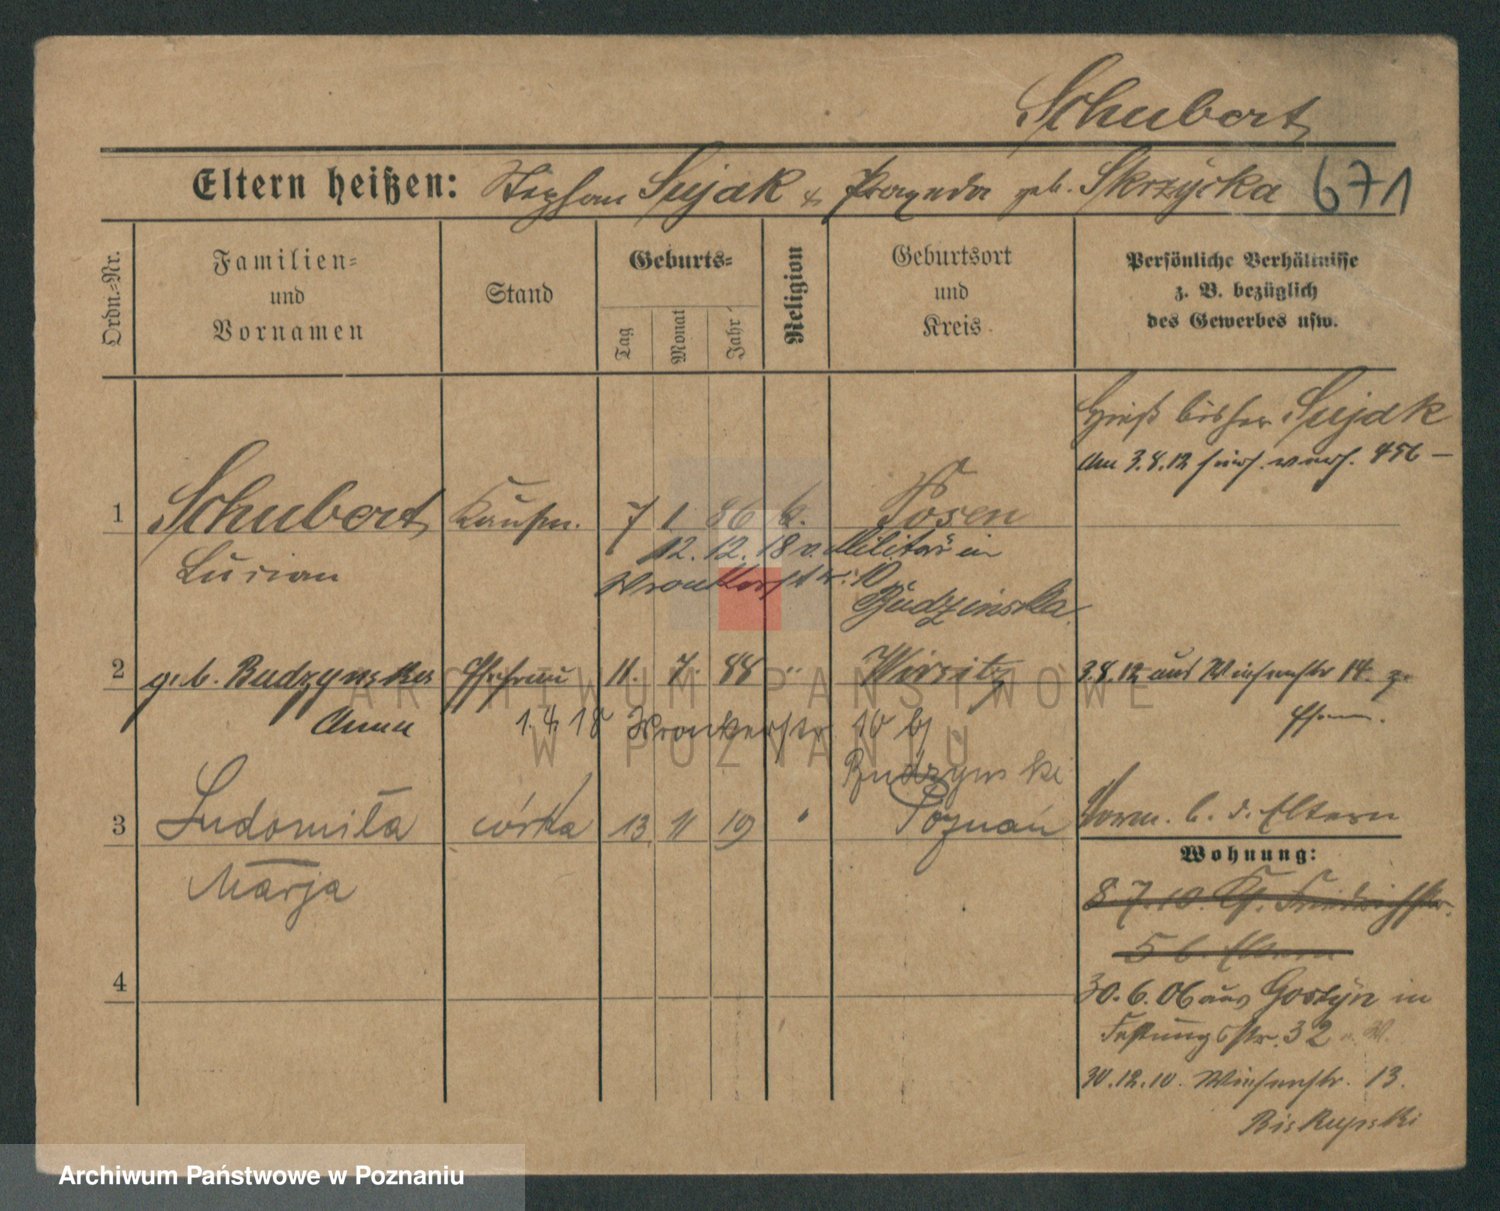 Schubert
Eltern heißen: Stephan Sujak & Praxeda geb. Skrzycka 671
Ordn.-Nr.
Familien-
und
Vornamen
Stand
Geburts-
Tag
Monat
Jahr
Religion
Geburtsort
und
Kreis
Persönliche Verhältnisse
z. B. bezüglich
des Gewerbes usw.
Hieß bisher Sujak
Am 3.8.12 456 —
1 Schubert Kaufm. 7 1 86 k. Posen
Lucian
12. 12. 18 v. Militär in
Wronkerstr. 10
Budzinska
2 geb. Budzynska Ehefrau 11. 7. 88 " Wirsitz
Anna
3.8.12 aus Wiesenstr 14 z.
Ehem.
1. 4. 18 Wronkerstr 10 bj
Budzynski
3 Ludomiła córka 13 11 19 " Poznań
Marja
Vorm. b. d. Eltern
Wohnung:
8.7.10. Kl. Friedrichstr.
5 b. Eltern
4
30.6.06 aus Gostyn in
Festungsstr. 32
30.12.10. Wiesenstr. 13.
Biskupski
ARCHIWUM PAŃSTWOWE
W POZNANIU
Archiwum Państwowe w Poznaniu